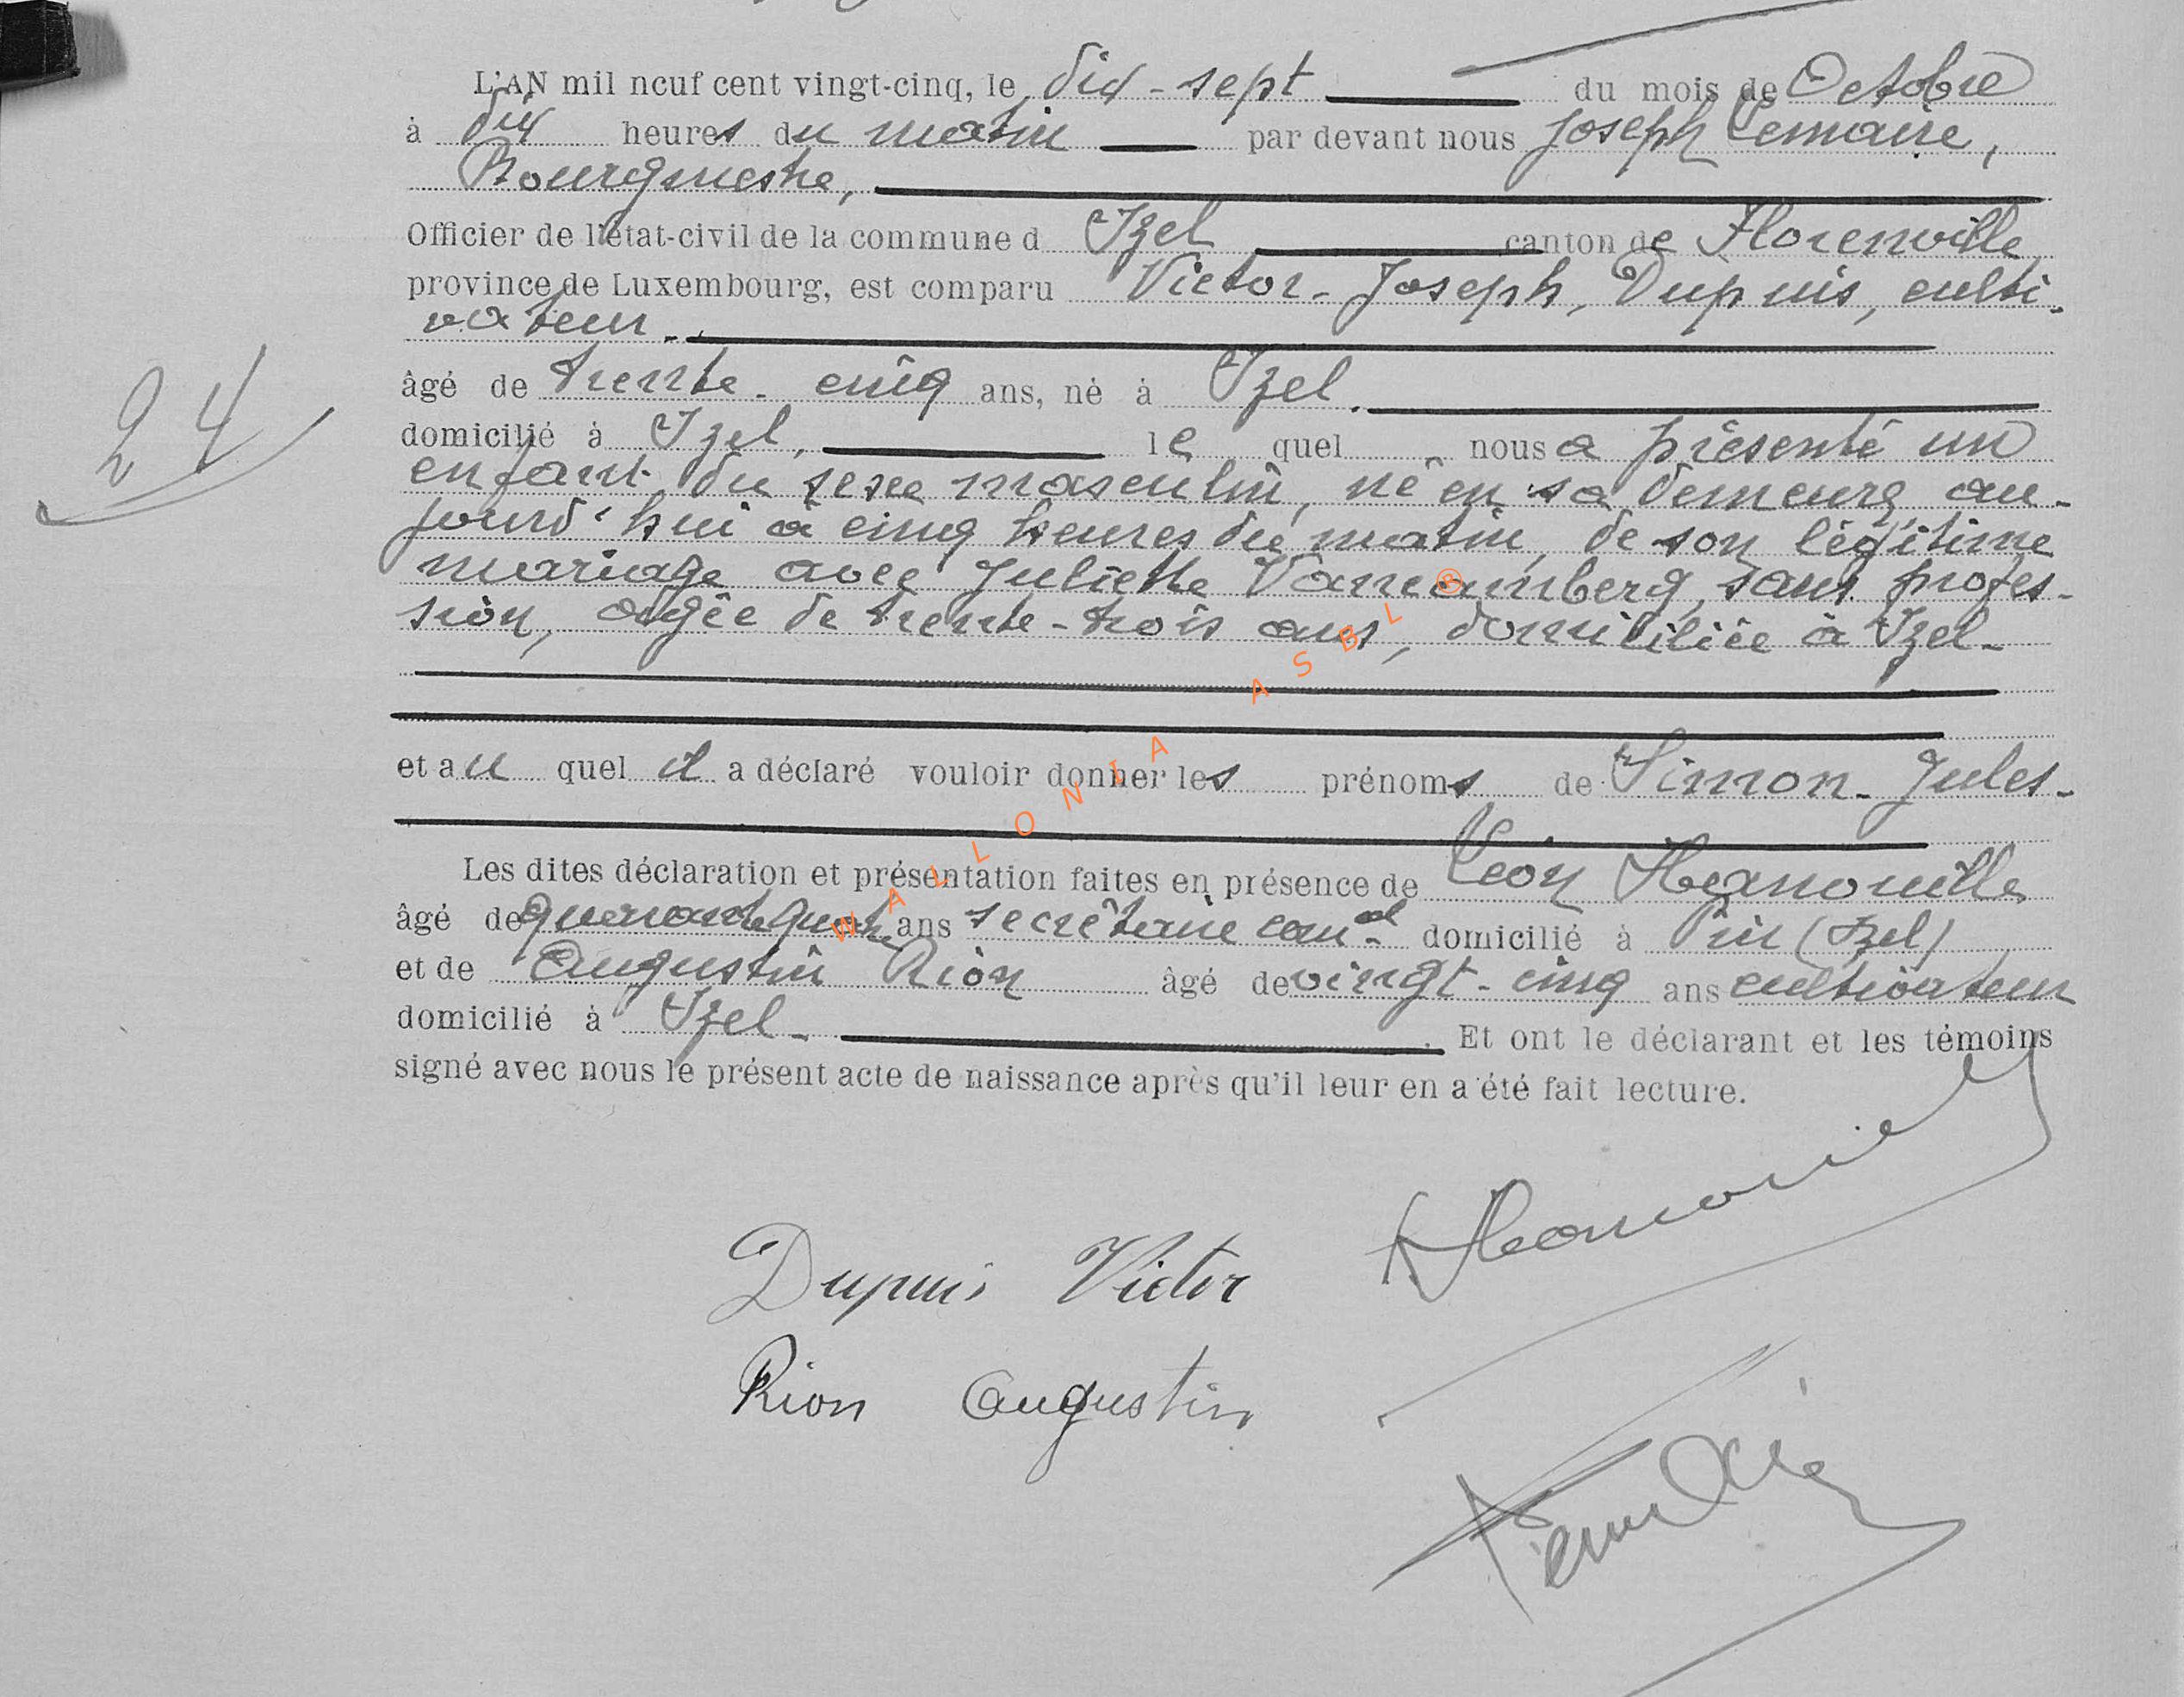 L'AN mil neuf cent vingt-cinq, le dix-sept du mois de Octobre
à dix heures du matin par devant nous Joseph Lemaire,
Bourgmestre,
Officier de l'état-civil de la commune d Izel canton de Florenville
province de Luxembourg, est comparu Victor-Joseph, Dupuis, culti-
vateur
âgé de trente-cinq ans, né à Izel.
24
domicilié à Izel, le quel nous a présenté un
enfant du sexe masculin, né en sa demeure, au-
jourd'hui à cinq heures du matin, de son légitime
mariage avec Juliette sans profes-
sion, âgée de trente-trois ans, domiciliée à Izel-
et au quel il a déclaré vouloir donner les prénoms de Simon-Jules-
Les dites déclaration et présentation faites en présence de Léon
âgé de quarante quatre ans secrétaire com.al domicilié à Pin (Izel)
et de Augustin Rion âgé de vingt-cinq ans cultivateur
domicilié à Izel- . Et ont le déclarant et les témoins
signé avec nous le présent acte de naissance après qu'il leur en a été fait lecture.
Dupuis Victor
Rion Augustin
WALLONIA ASBL ®